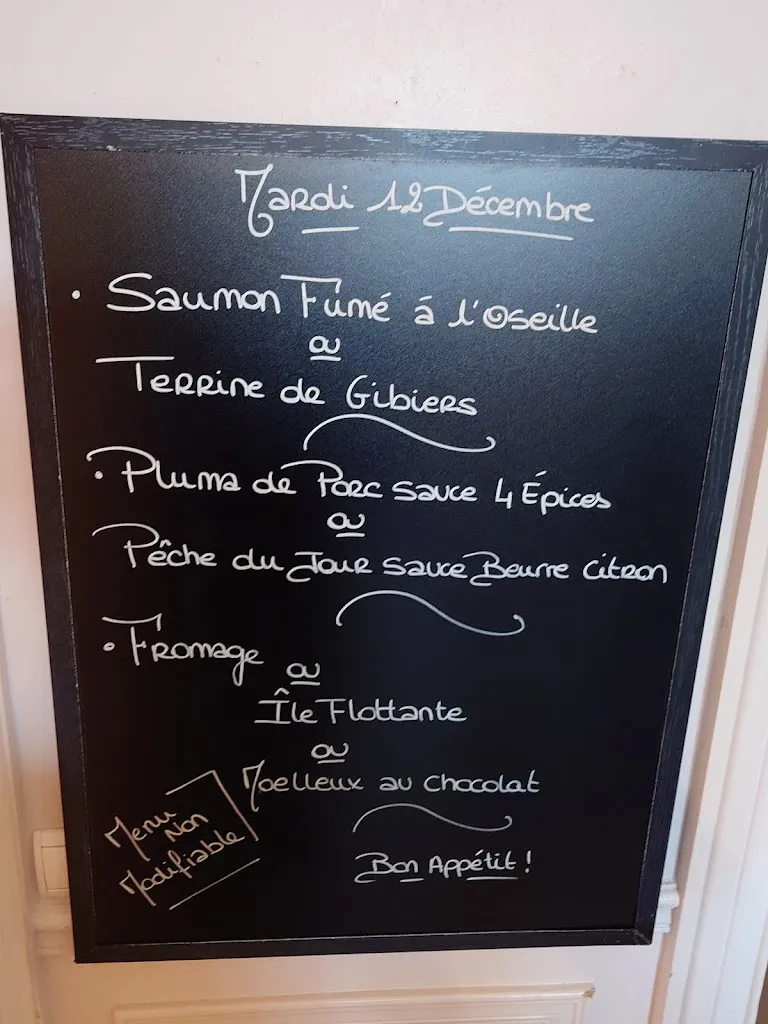 Mardi 12 Décembre
• Saumon Fumé á l'Oseille
ou
Terrine de Gibiers
• Pluma de Porc sauce 4 Épices
ou
Pêche du Jour sauce Beurre Citron
• Fromage
ou
Île Flottante
ou
Moelleux au Chocolat
Menu
Non
Modifiable
Bon Appétit !